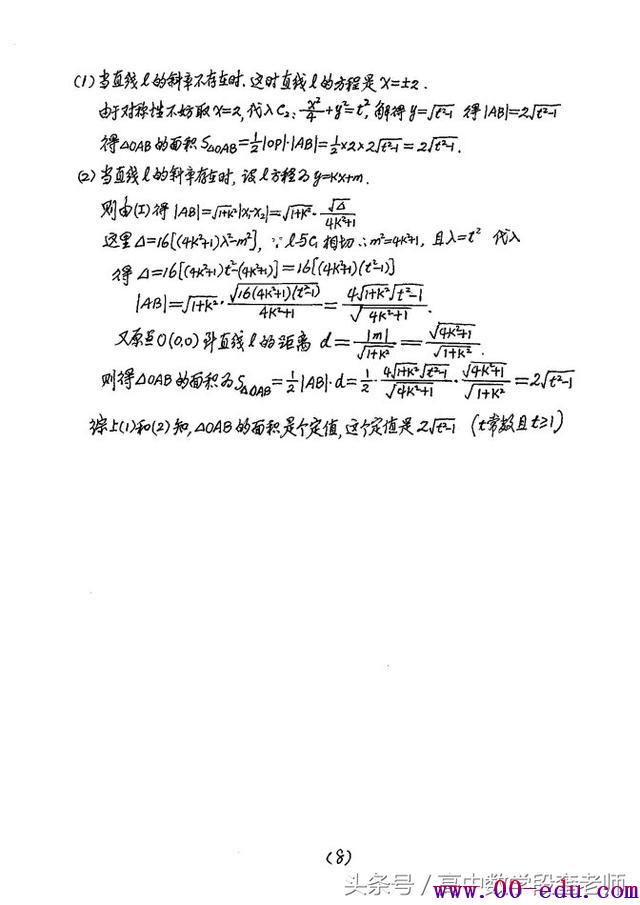 (1)当直线l的斜率不存在时.这时直线l的方程是X=±2.
由于对称性不妨取X=2,代入C₂:x²/4+y²=t²,解得y=√(t²-1) 得|AB|=2√(t²-1)
得△OAB的面积S△OAB=1/2|OP|·|AB|=1/2×2×2√(t²-1)=2√(t²-1).
(2)当直线l的斜率存在时,设l方程为y=kx+m.
则由(I)得|AB|=√(1+k²)|x₁-x₂|=√(1+k²)·√△/(4k²+1)
这里△=16[(4k²+1)λ²-m²],∵l与C₁相切∴m²=4k²+1,且λ=t² 代入
得△=16[(4k²+1)t²-(4k²+1)]=16[(4k²+1)(t²-1)]
|AB|=√(1+k²)·√(16(4k²+1)(t²-1))/(4k²+1)=4√(1+k²)√(t²-1)/√(4k²+1).
又原点O(0,0)到直线l的距离d=|m|/√(1+k²)=√(4k²+1)/√(1+k²).
则得△OAB的面积为S△OAB=1/2|AB|·d=1/2·4√(1+k²)√(t²-1)/√(4k²+1)·√(4k²+1)/√(1+k²)=2√(t²-1)
综上(1)和(2)知,△OAB的面积是个定值,这个定值是2√(t²-1) (t常数且t≥1)
(8)
头条号/高中数学段奎老师
www.00-edu.com